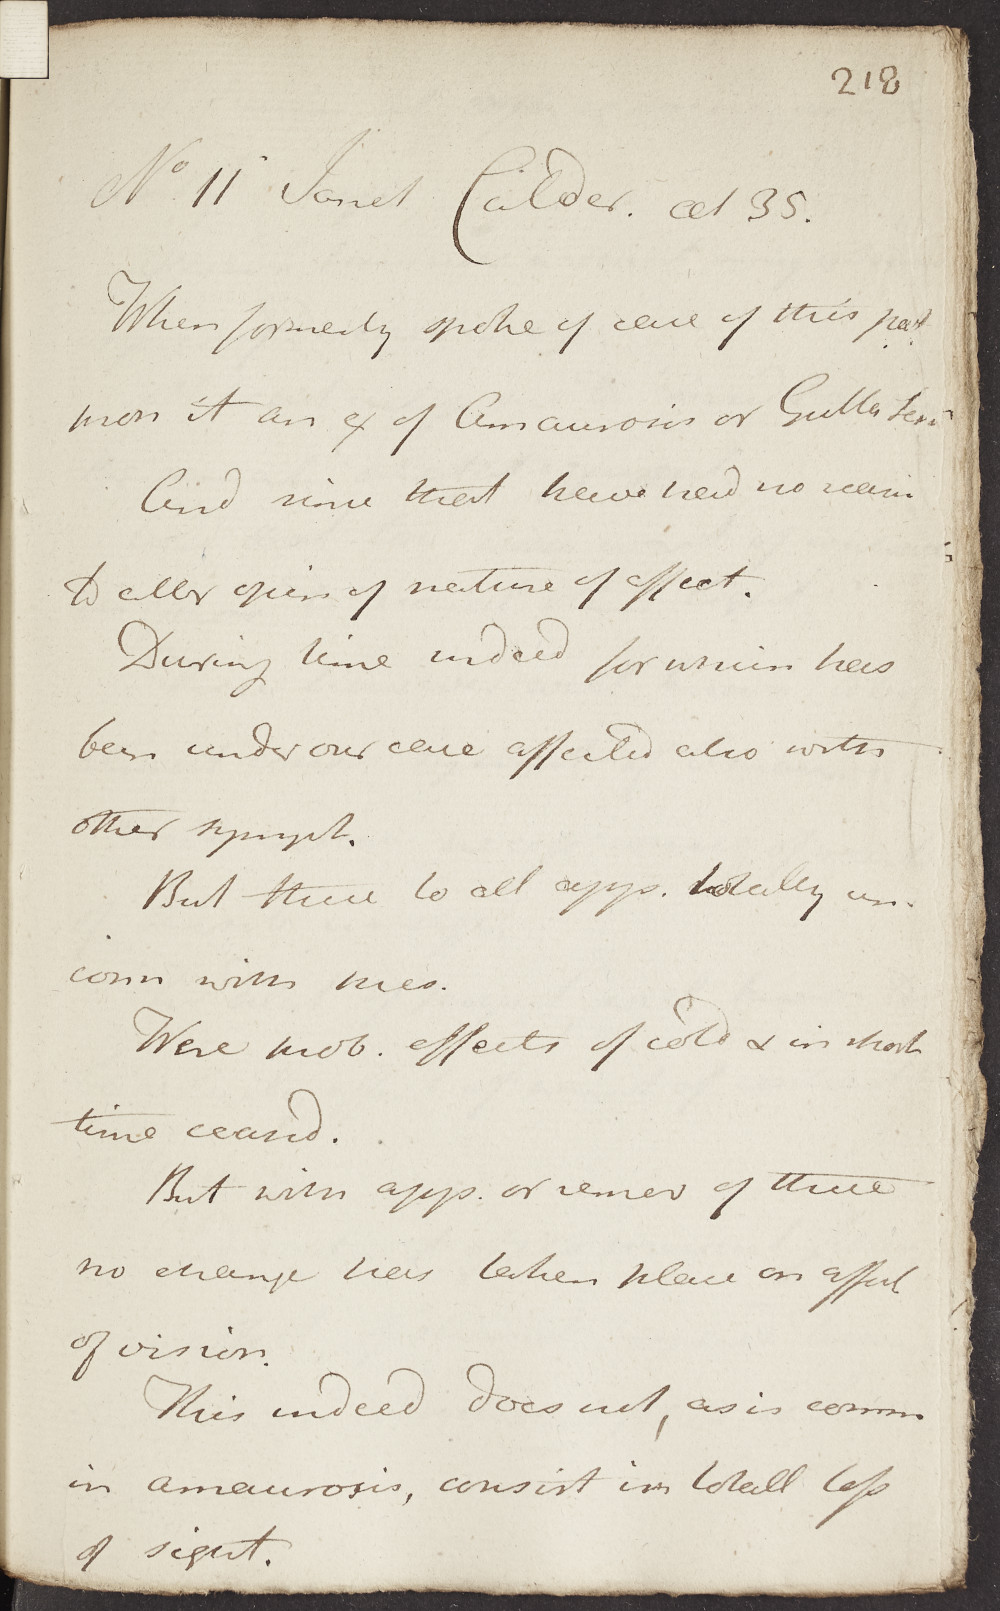 218
No 11 Janet Calder. aet 35.
When formerly spoke of case of this pat.
pron it an ex of Amaurosis or Gutta Ser.
And since that have had no reason
to alter opin of nature of affect.
During time indeed for which has
been under our care affected also with
other sympt.
But these to all app. totally un-
conn with this.
Were prob. effects of cold & in short
time ceased.
But with app. or remov of these
no change has taken place on affect
of vision.
This indeed does not, as is comm
in amaurosis, consist in totall loss
of sight.